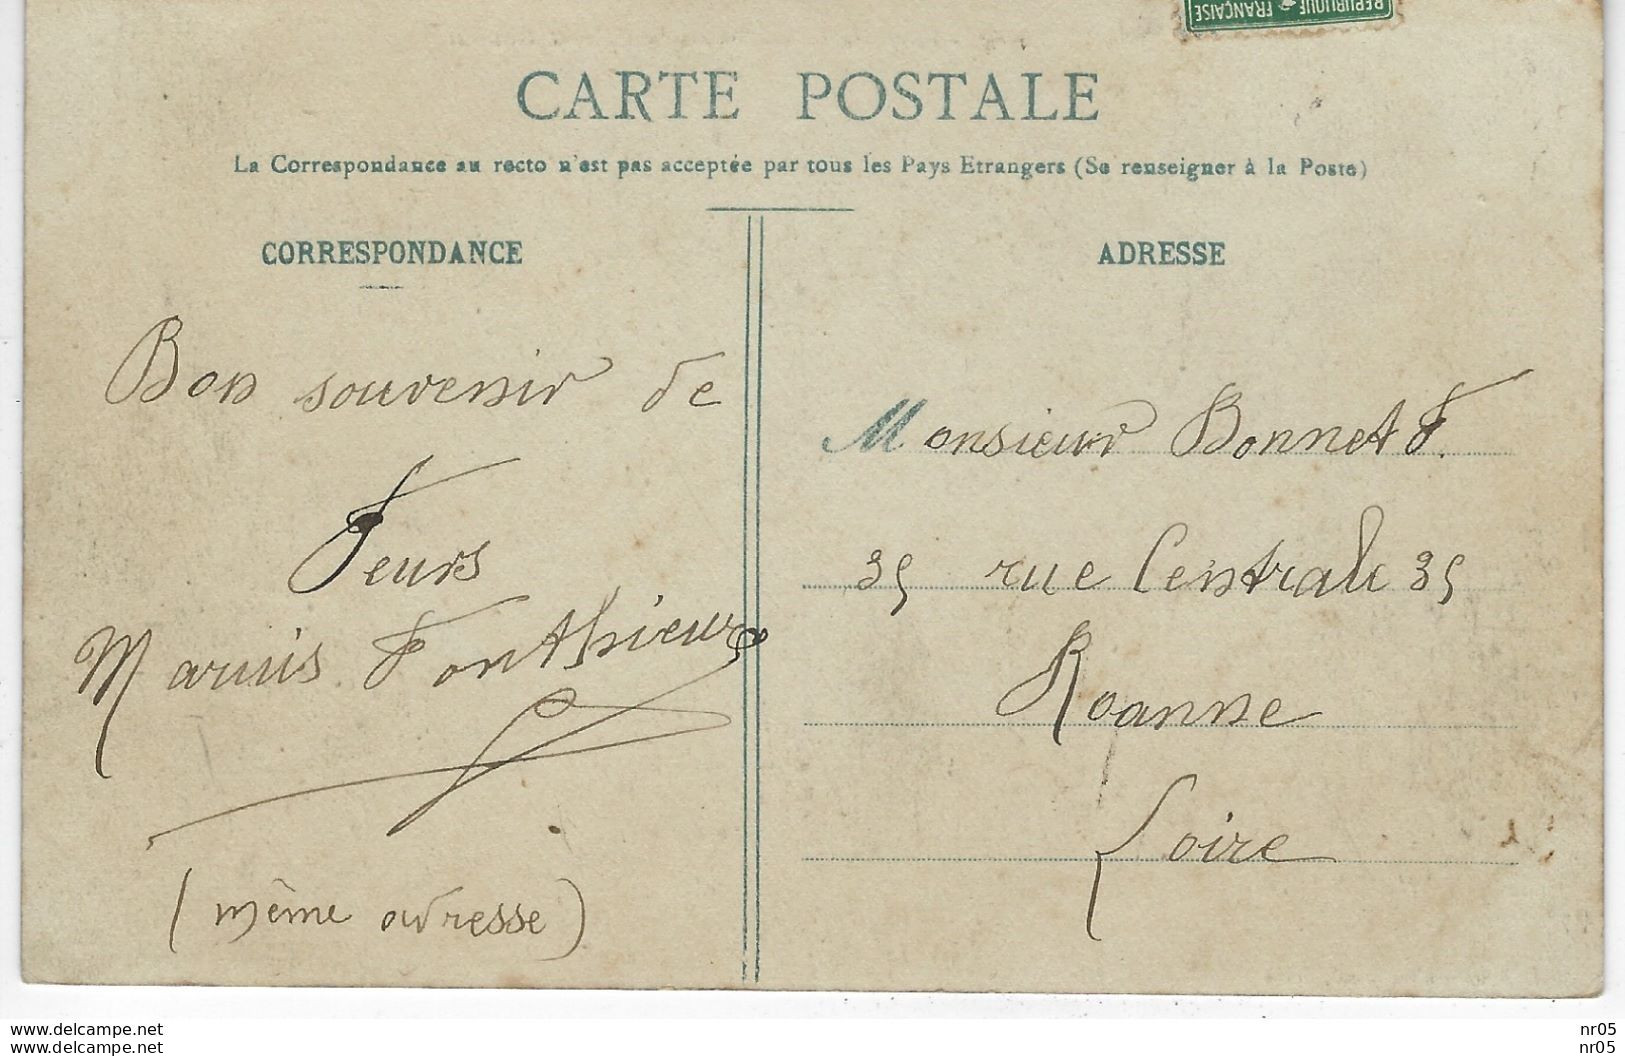 REPUBLIQUE FRANÇAISE
CARTE POSTALE
La Correspondance au recto n'est pas acceptée par tous les Pays Etrangers (Se renseigner à la Poste)
CORRESPONDANCE
Bon souvenir de
Feurs
Marius Fonthieure
(même adresse)
ADRESSE
Monsieur Bonnet F.
35 rue Centrale 35
Roanne
Loire
www.delcampe.net
www.delcampe.net
nr05
nr05